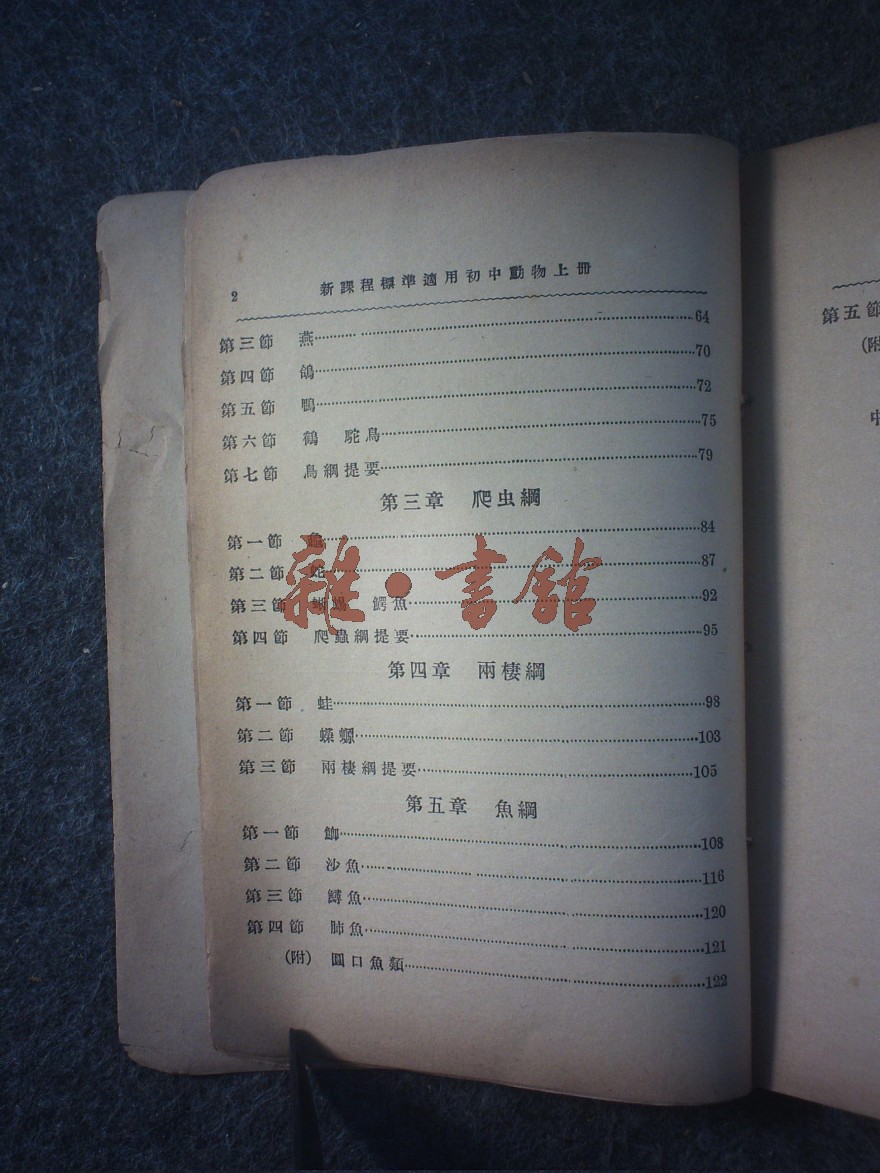 2　新課程標準適用初中動物上冊
第三節　燕……64
第四節　鴿……70
第五節　鴨……72
第六節　鶴　鴕鳥……75
第七節　鳥綱提要……79
第三章　爬虫綱
第一節　龜……84
第二節　蛇……87
第三節　蜥蜴　鰐魚……92
第四節　爬蟲綱提要……95
第四章　兩棲綱
第一節　蛙……98
第二節　蠑螈……103
第三節　兩棲綱提要……105
第五章　魚綱
第一節　鯽……108
第二節　沙魚……116
第三節　鱘魚……120
第四節　肺魚……121
(附)　圓口魚類……122
雜·書館
第五節
(附
中